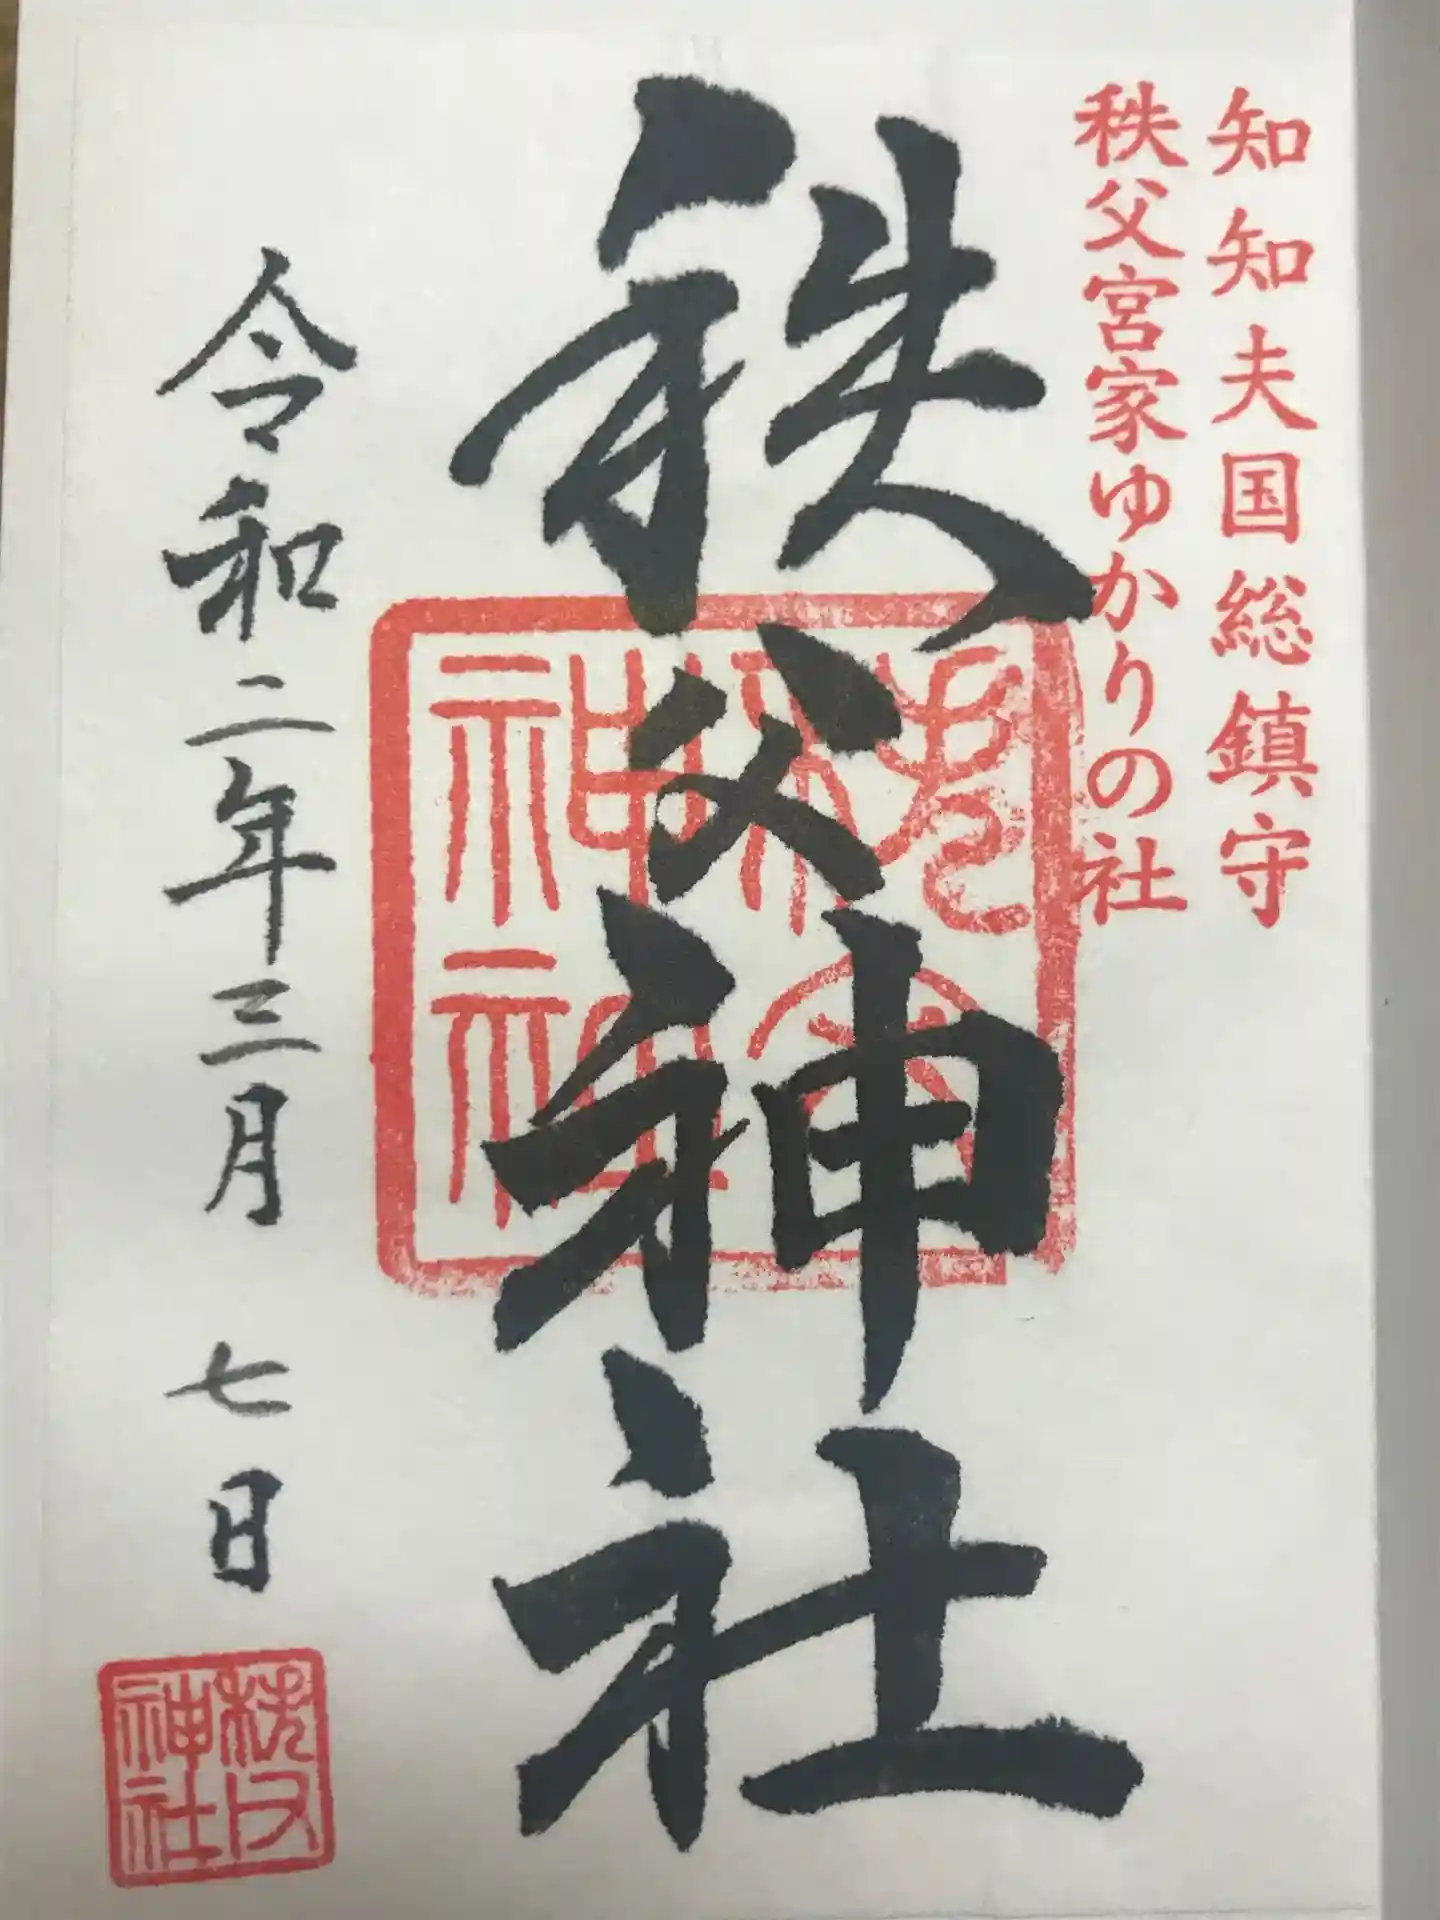 知知夫国総鎮守
秩父宮家ゆかりの社
秩父神社
令和二年三月七日
秩父神社
秩父神社